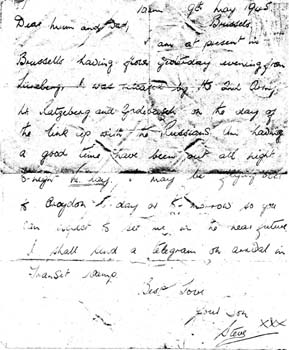 10am 9th May 1945
Brussels.
Dear Mum and Dad,
I am at present in
Brussels having flown yesterday evening from
Luneberg. I was by the 2nd Army,
at Ratzeberg and on the day of
the link up with the Russians. Im having
a good time have been out all night
I may be flying back
to Croydon to-day or to-morrow so you
can expect to see me in the near future
I shall send a telegram on arrival in
Transit Camp.
Best Love
your Son
Steve xxx